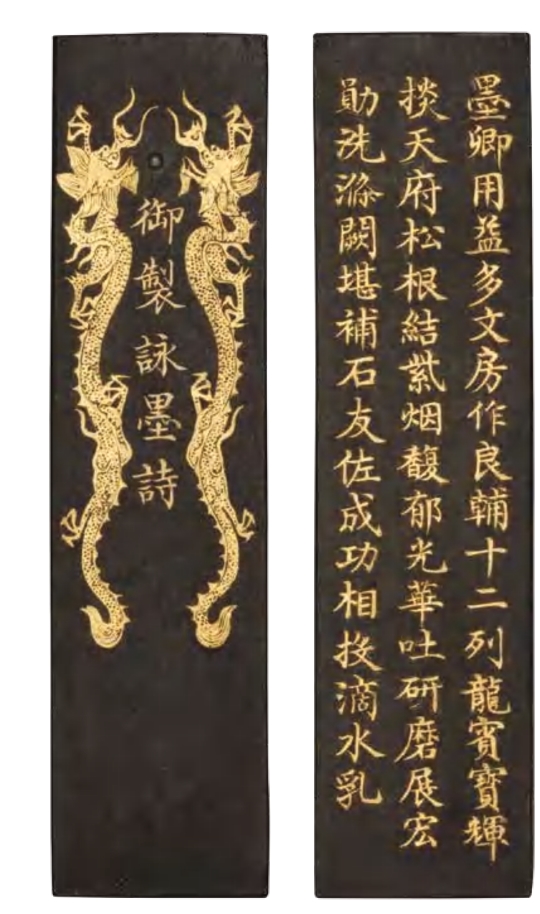 御製詠墨詩
墨卿用益多文房作良輔十二列龍賓寶輝
掞天府松根結紫烟馥郁光華吐研磨展宏
勛洗滌闕堪補石友佐成功相投滴水乳